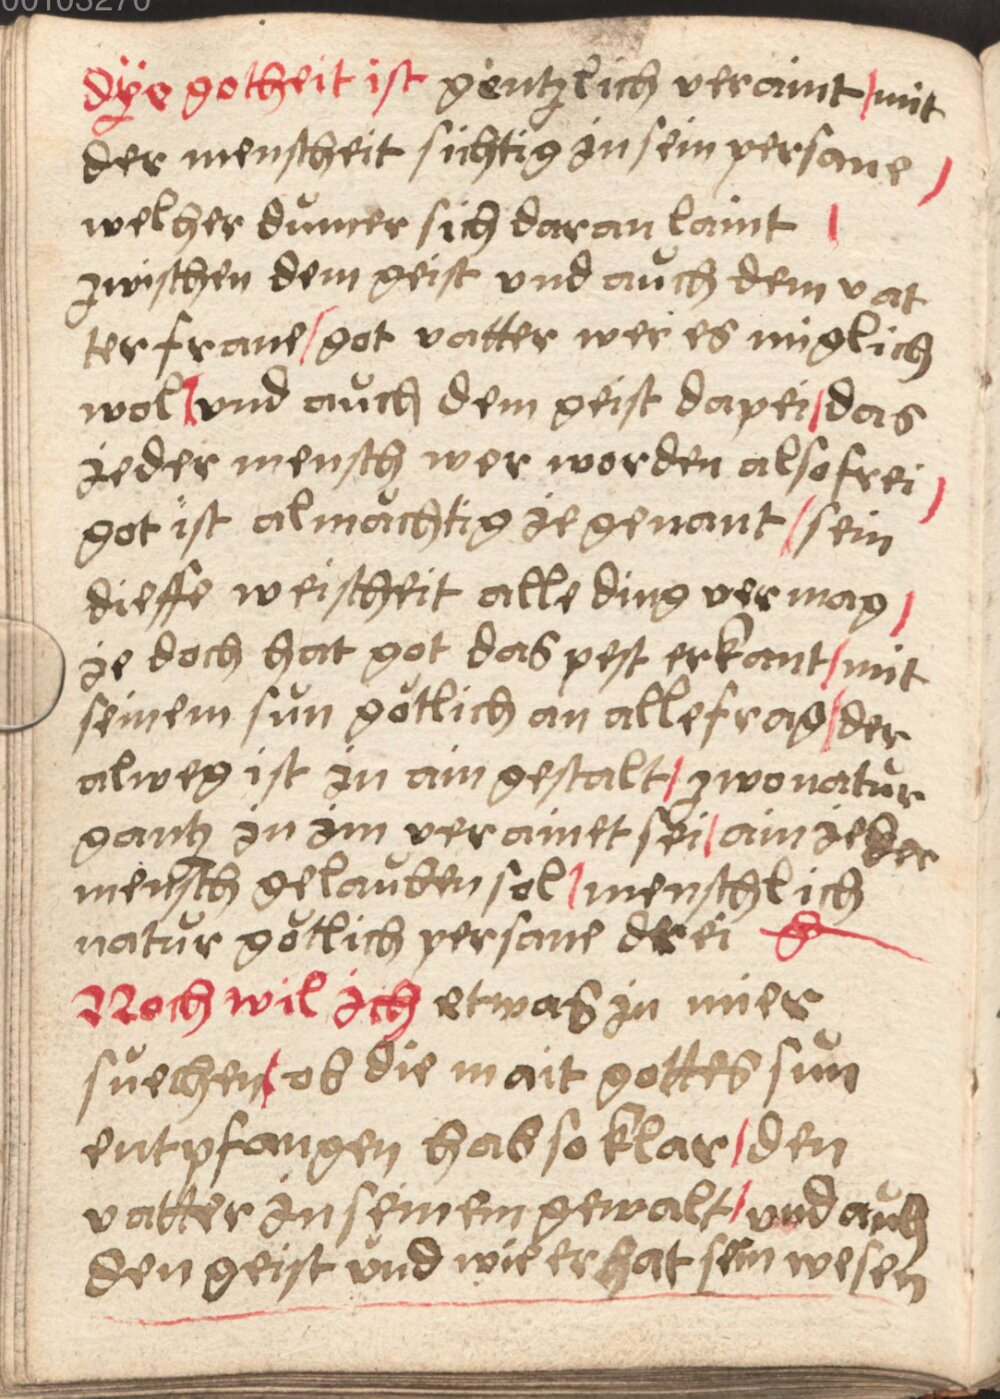 00103270
Dÿe gotheit ist gentzlich veraint / mit
der menscheit sichtig in sein persane /
welher dumer sich daran laint /
zwischen dem geist vnd auch dem vat
ter frane / got vatter wer es miglich
wol / vnd auch dem geist dapei / das
jeder mensch wer worden also frei /
got ist almachtig je genant / sein
dieffe weischeit alle ding vermag /
je doch hat got das pest erkant / mit
seinem sun götlich an alle frag / der
alweg ist in ain gestalt / zwo natur
gantz in im verainet sei / ain jeder
mensch gelauben sol / menschlich
natur götlich persane drei
Noch wil ich etwas in mier
suechen / ob die mait gottes sun
entpfangen hab so klar / den
vatter in seinem gewalt / vnd auch
den geist vnd wie er hat sein wesen